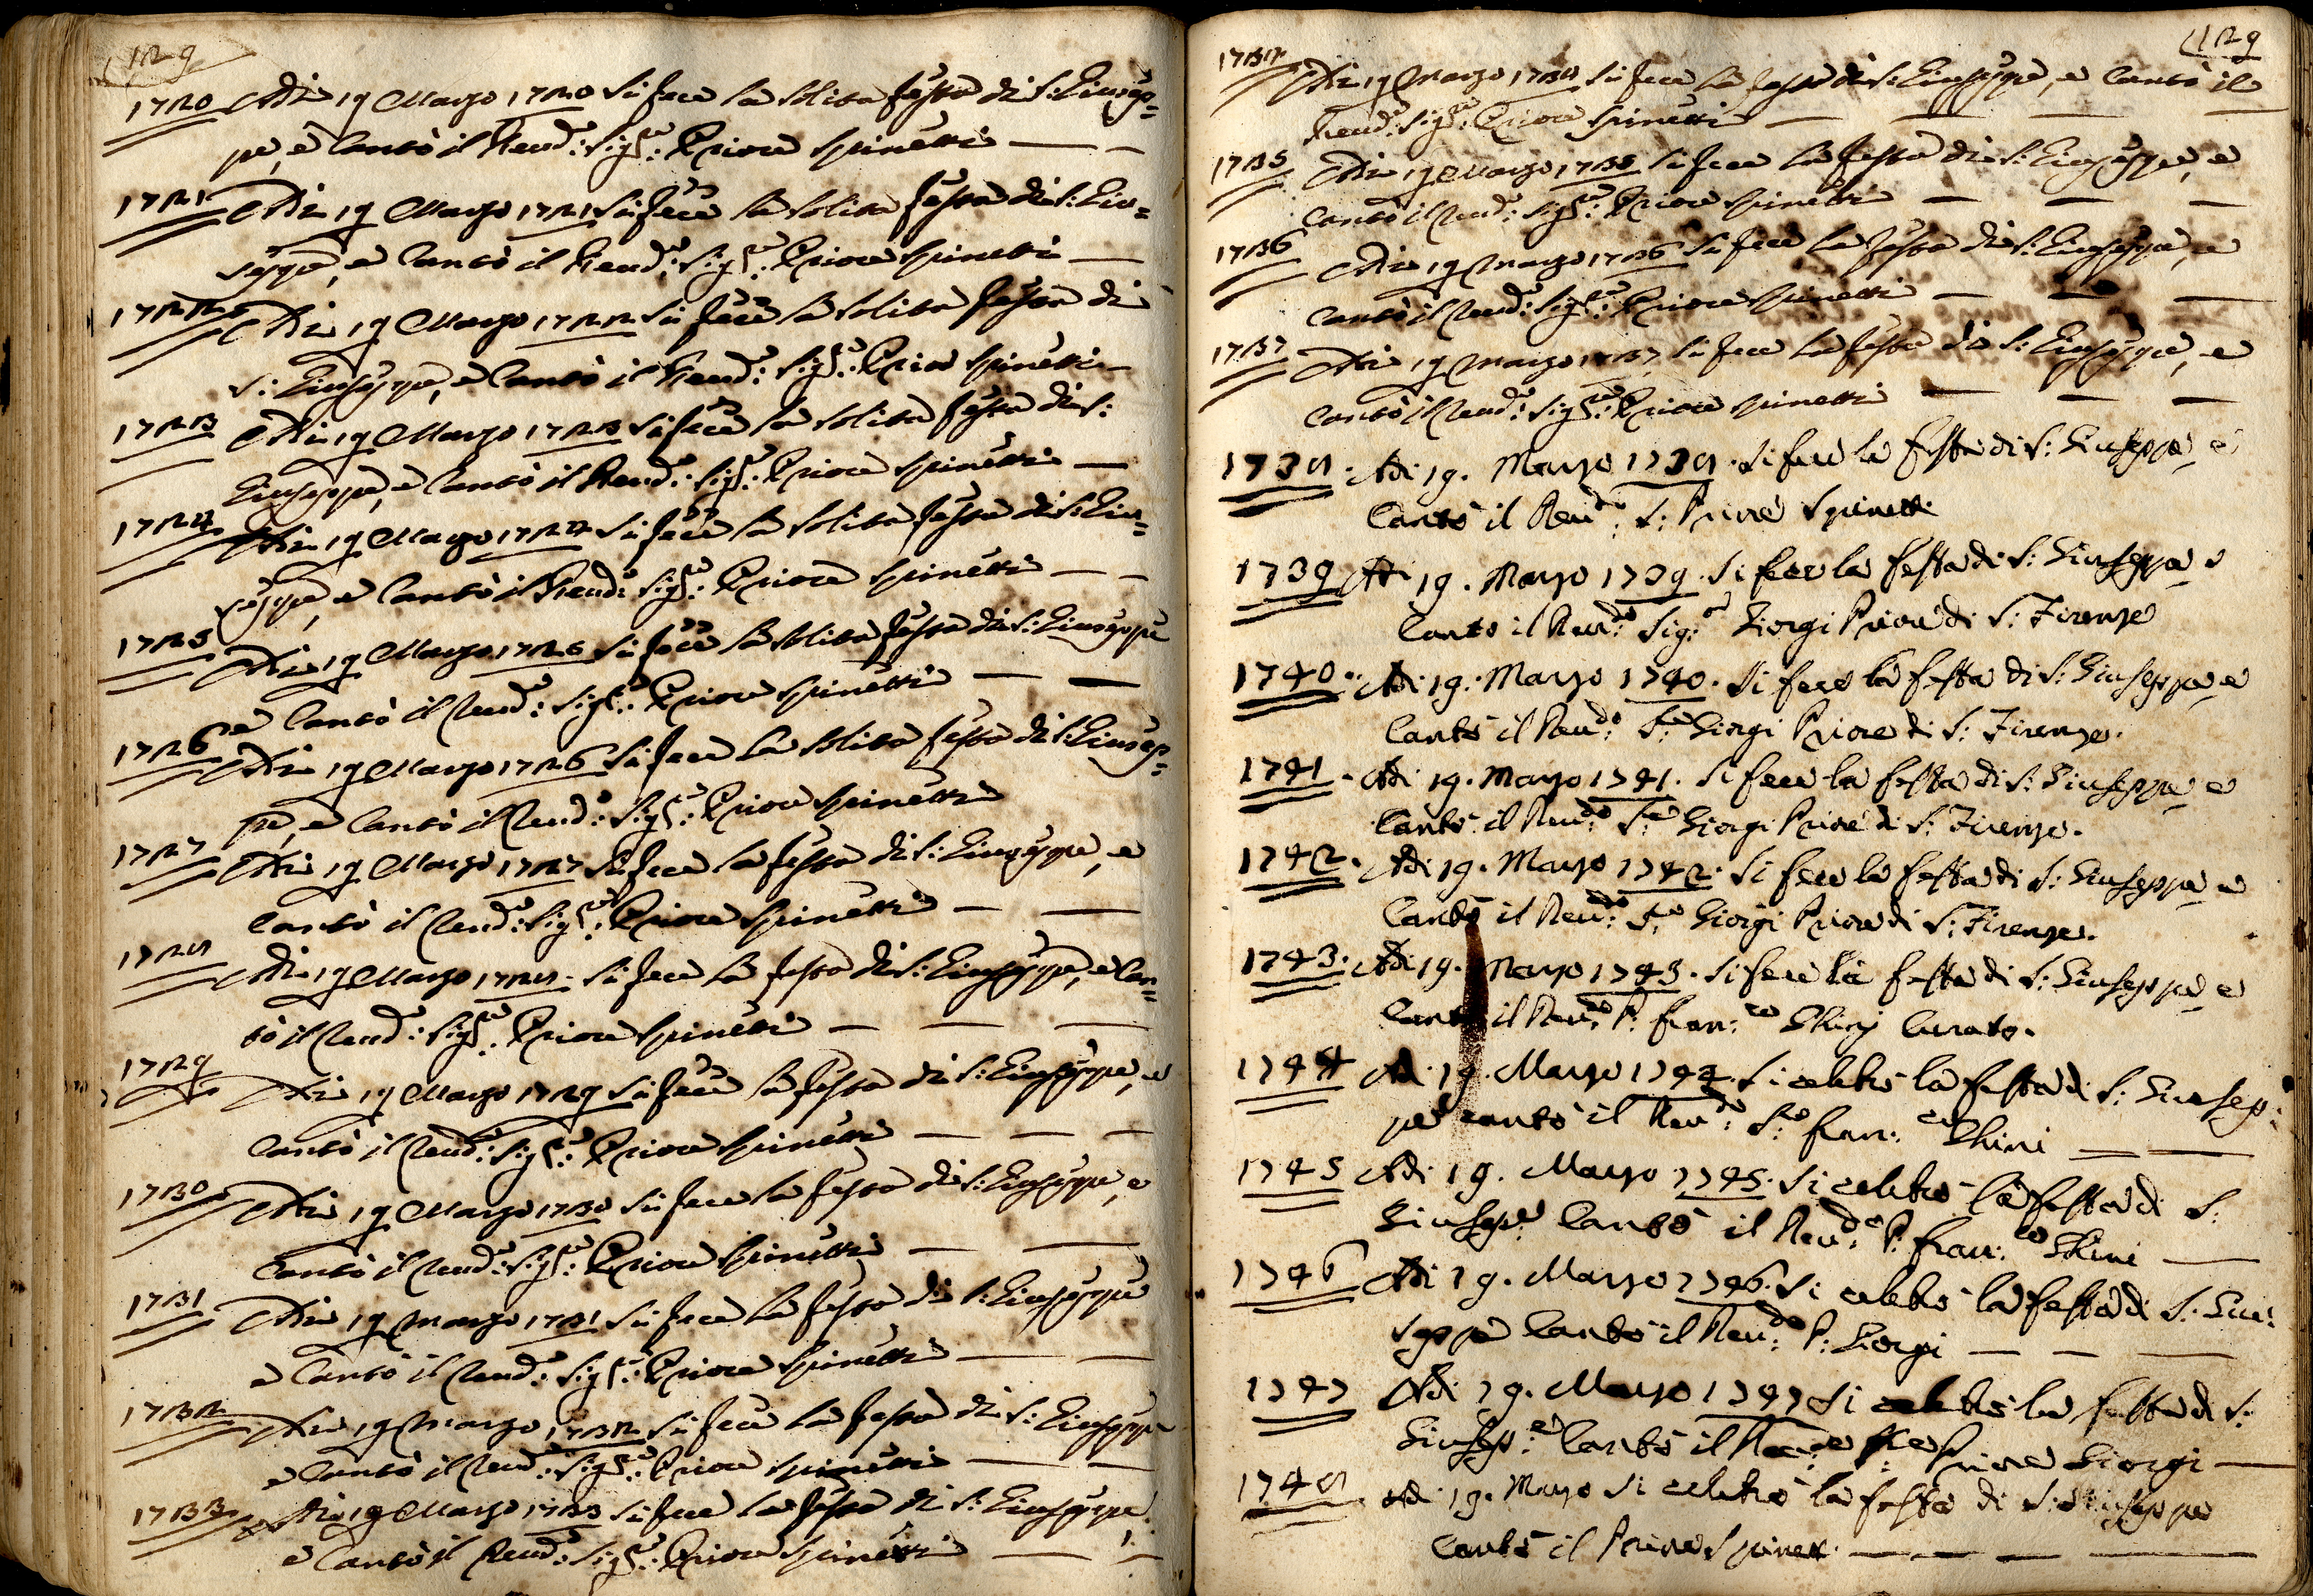 129
1720 Adi 19 Marzo 1720 si fece la solita festa di S: Giusep=
pe, e cantò il Reud:o Sig:re Priore Spinetti
1721 Adi 19 Marzo 1721 si fece la solita festa di S: Giu=
seppe, e cantò il Reud:o Sig:re Priore Spinetti
1722 Adi 19 Marzo 1722 si fece la solita festa di
S: Giuseppe, e cantò il Reud:o Sig:re Prior Spinetti
1723 Adi 19 Marzo 1723 si fece la solita festa di S:
Giuseppe, e cantò il Reud:o Sig:re Priore Spinetti
1724 Adi 19 Marzo 1724 si fece la solita festa di S: Giu=
seppe, e cantò il Reud:o Sig:re Priore Spinetti
1725 Adi 19 Marzo 1725 si fece la solita festa di S: Giuseppe
e cantò il Reud:o Sig:re Priore Spinetti
1726 Adi 19 Marzo 1726 si fece la solita festa di S: Giusep=
pe, e cantò il Reud:o Sig:re Priore Spinetti
1727 Adi 19 Marzo 1727 si fece la festa di S: Giuseppe, e
cantò il Reud:o Sig:re Priore Spinetti
1728 Adi 19 Marzo 1728 si fece la festa di S: Giuseppe, e can=
tò il Reud:o Sig:re Priore Spinetti
1729 Adi 19 Marzo 1729 si fece la festa di S: Giuseppe, e
cantò il Reud:o Sig:re Priore Spinetti
1730 Adi 19 Marzo 1730 si fece la festa di S: Giuseppe, e
cantò il Reud:o Sig:re Priore Spinetti
1731 Adi 19 Marzo 1731 si fece la festa di S: Giuseppe
e cantò il Reud:o Sig:re Priore Spinetti
1732 Adi 19 Marzo 1732 si fece la festa di S: Giuseppe
e cantò il Reud:o Sig:re Priore Spinetti
1733 Adi 19 Marzo 1733 si fece la festa di S: Giuseppe
e cantò il Reud:o Sig:re Priore Spinetti
129
1734 Adi 19 Marzo 1734 si fece la festa di S: Giuseppe, e cantò il
Reud:o Sig:re Priore Spinetti
1735 Adi 19 Marzo 1735 si fece la festa di S: Giuseppe, e
cantò il Reud:o Sig:re Priore Spinetti
1736 Adi 19 Marzo 1736 si fece la festa di S: Giuseppe, e
cantò il Reud:o Sig:re Priore Spinetti
1737 Adi 19 Marzo 1737 si fece la festa di S: Giuseppe, e
cantò il Reud:o Sig:re Priore Spinetti
1738. Adi 19. Marzo 1738. si fece la festa di S: Giuseppe e
Cantò il Reud:o S: Priore Spinetti
1739 Adi 19. Marzo 1739. si fece la festa di S: Giuseppe e
Canto il Reud:o Sig:re Giorgi Priore di S: Firenze
1740. Adi 19. Marzo 1740. si fece la festa di S: Giuseppe e
Cantò il Reud:o S:re Giorgi Priore di S: Firenze.
1741. Adi 19. Marzo 1741. si fece la festa di S: Giuseppe e
Cantò il Reud:o S:re Giorgi Priore di S: Firenze.
1742. Adi 19. Marzo 1742. si fece la festa di S: Giuseppe e
Cantò il Reud:o S:re Giorgi Priore di S: Firenze.
1743. Adi 19. Marzo 1743. si fece la festa di S: Giuseppe e
Cantò il Reud:o P: Fran:co Ghinj Curato.
1744 Adi 19. Marzo 1744. si celebrò la festa di S: Giusep:
pe cantò il Reud:o S:re Fran:co Ghini
1745 Adi 19. Marzo 1745. si celebrò la festa di S:
Giusep:e Cantò il Reud:o P: Fran:co Ghini
1746 Adi 19. Marzo 1746. si celebrò la festa di S: Giu:
seppe Cantò il Reud:o P: Giorgi
1747 Adi 19. Marzo 1747 si celebrò la festa di S:
Giusep:e Cantò il Priore Giorgi
1748. Adi 19. Marzo si celebrò la festa di S: Giuseppe
Cantò il Priore Spinett.